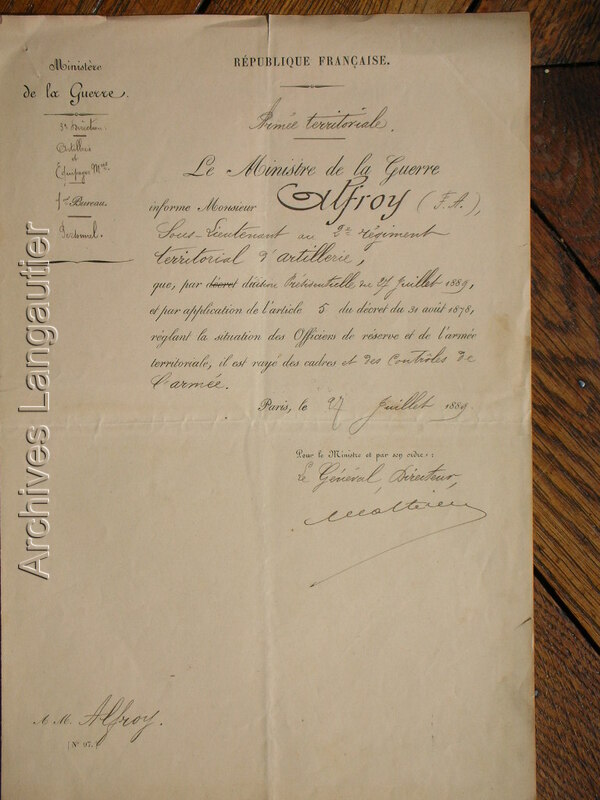 Ministère
de la Guerre.
3e Direction.
Artillerie
et
Équipages Mres.
1er Bureau.
Personnel.
RÉPUBLIQUE FRANÇAISE.
Armée territoriale.
Le Ministre de la Guerre
informe Monsieur Alfroy (F. A.),
Sous-Lieutenant au 2e régiment
territorial d'artillerie,
que, par décret décision Présidentielle du 27 Juillet 1889,
et par application de l'article 5 du décret du 31 août 1878,
réglant la situation des Officiers de réserve et de l'armée
territoriale, il est rayé des cadres et des Contrôles de
l'armée.
Paris, le 27 Juillet 1889.
Pour le Ministre et par son ordre :
Le Général, Directeur,
A M. Alfroy.
[N° 97.]
Archives Langautier